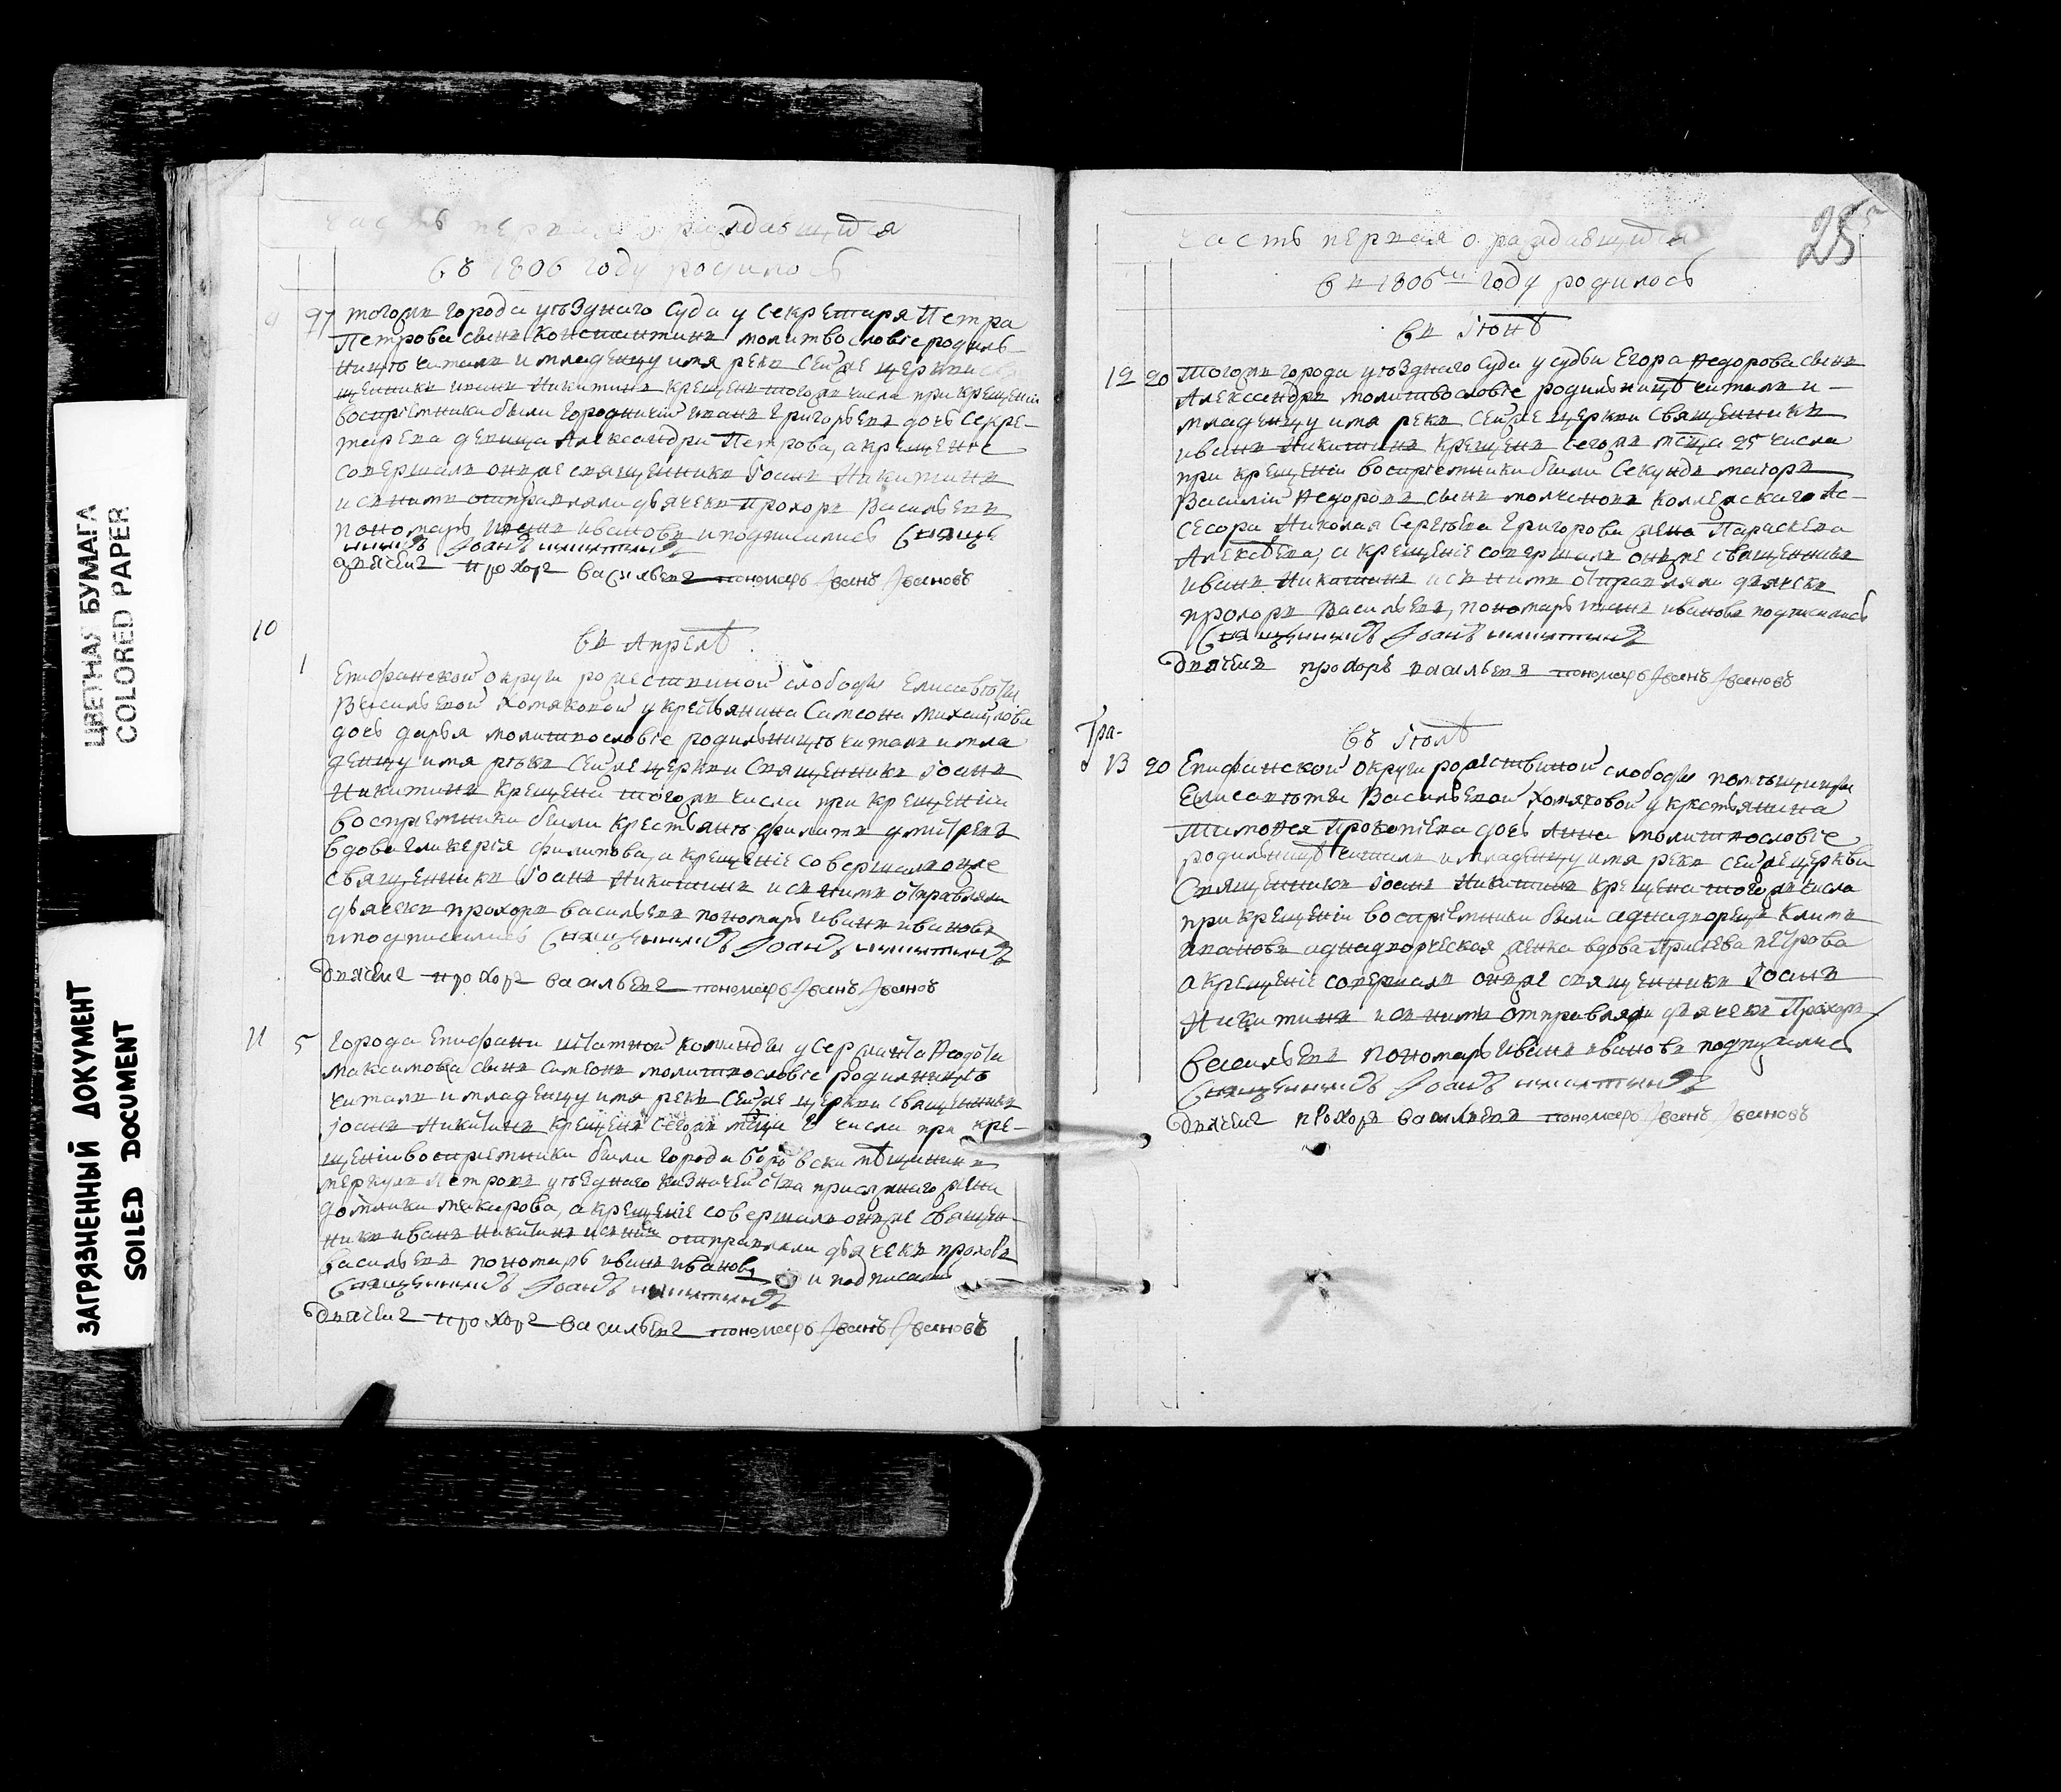 ЦВЕТНАЯ БУМАГА
COLORED PAPER
ЗАГРЯЗНЕННЫЙ ДОКУМЕНТ
SOILED DOCUMENT
часть первая о раждающихся
въ 1806 году родилось
9 27 тогожъ города уѣзднаго суда у секретаря Петра
Петрова сынъ Константинъ молитвословіе родиль-
ницѣ читалъ и младенцу имя рекъ сейже церкви
щенникъ иванъ Никитинъ крещенъ тогожъ числа при крещеніи
воспріемники были городничій иванъ Григорьевъ дочь секре-
тарева девица Александра Петрова, а крещение
совершалъ онже священникъ Іоанъ Никитинъ
и снимъ отправляли дьячекъ Прохоръ Васильевъ
пономарь иванъ ивановъ и подписались Священ
никъ Іоанъ Никитинъ
дьячекъ прохоръ васильевъ пономарь Іванъ Івановъ
въ Апрелѣ
10 1 Епифанской округи рожествиной слободы Елисаветы
Васильевой Хомяковой у крестьянина Самсона Михайлова
дочь дарья молитвословіе родильницѣ читалъ и мла
денцу имя рѣкъ сейже церкви Священникъ Іоанъ
Никитинъ крещена тогожъ числа при крещеніи
воспріемники были крестьянъ филатъ дмитревъ
вдова гликерія филипова, а крещеніе совершалъ онже
священникъ Іоанъ Никитинъ и снимъ отправляли
дьячекъ прохоръ васильевъ пономарь иванъ ивановъ
и подписались Священникъ Іоанъ Никитинъ
дьячекъ прохоръ васильевъ пономарь Іванъ Івановъ
11 5 города Епифани штатной команды у сержанта Ѳедота
Максимова сынъ Симеонъ молитвословіе родилницѣ
читалъ и младенцу имя рекъ сейже церкви священникъ
Іоанъ Никитинъ крещенъ сегожъ мсца числа при кре-
щеніи воспріемники были города мѣщанинъ
меркулъ Петровъ уѣзднаго казначейства присяжнаго жена
домника макарова, а крещеніе совершалъ онже священ-
никъ иванъ никитинъ и снимъ отправляли дьячекъ прохоръ
васильевъ пономарь иванъ ивановъ и подписались
Священникъ Іоанъ Никитинъ
дьячекъ прохоръ васильевъ пономарь Іванъ Івановъ
25
часть первая о раждающихся
въ 1806мъ году родилось
въ Іюнѣ
12 20 Тогожъ города уѣзднаго суда у судьи Егора Ѳедорова сынъ
Александръ молитвословіе родильницѣ читалъ и
младенцу имя рекъ сейже церкви Священникъ
иванъ Никитинъ крещенъ сегожъ мсца 25 числа
при крещеніи воспріемники были Секундъ маіоръ
Василій Ѳедоровъ сынъ молчановъ коллежскаго Ас-
сесора Николая Сергѣева Григорова жена Параскева
Алексѣева, а крещеніе совершалъ онже священникъ
иванъ Никитинъ и снимъ отправляли дьячекъ
прохоръ Васильевъ, пономарь иванъ ивановъ подписались
Священникъ Іоанъ Никитинъ
дьячекъ прохоръ васильевъ пономарь Іванъ Івановъ
Тра-
въ Іюлѣ
13 20 Епифанской округи рожествиной слободы помѣщицы
Елисаветы Васильевой Хомяковой у крстьянина
Тимоѳея Прокопіева дочь Анна молитвословіе
родильницѣ читалъ и младенцу имя рекъ сейже церкви
Священникъ Іоанъ Никитинъ крещена тогожъ числа
при крещеніи воспріемники были аднадворецъ Климъ
ивановъ аднадворческая женка вдова петрова
а крещеніе совершалъ онже священникъ Іоанъ
Никитинъ и снимъ отправляли дьячекъ Прохоръ
васильевъ пономарь иванъ ивановъ подписались
Священникъ Іоанъ Никитинъ
дьячекъ прохоръ васильевъ пономарь Іванъ Івановъ